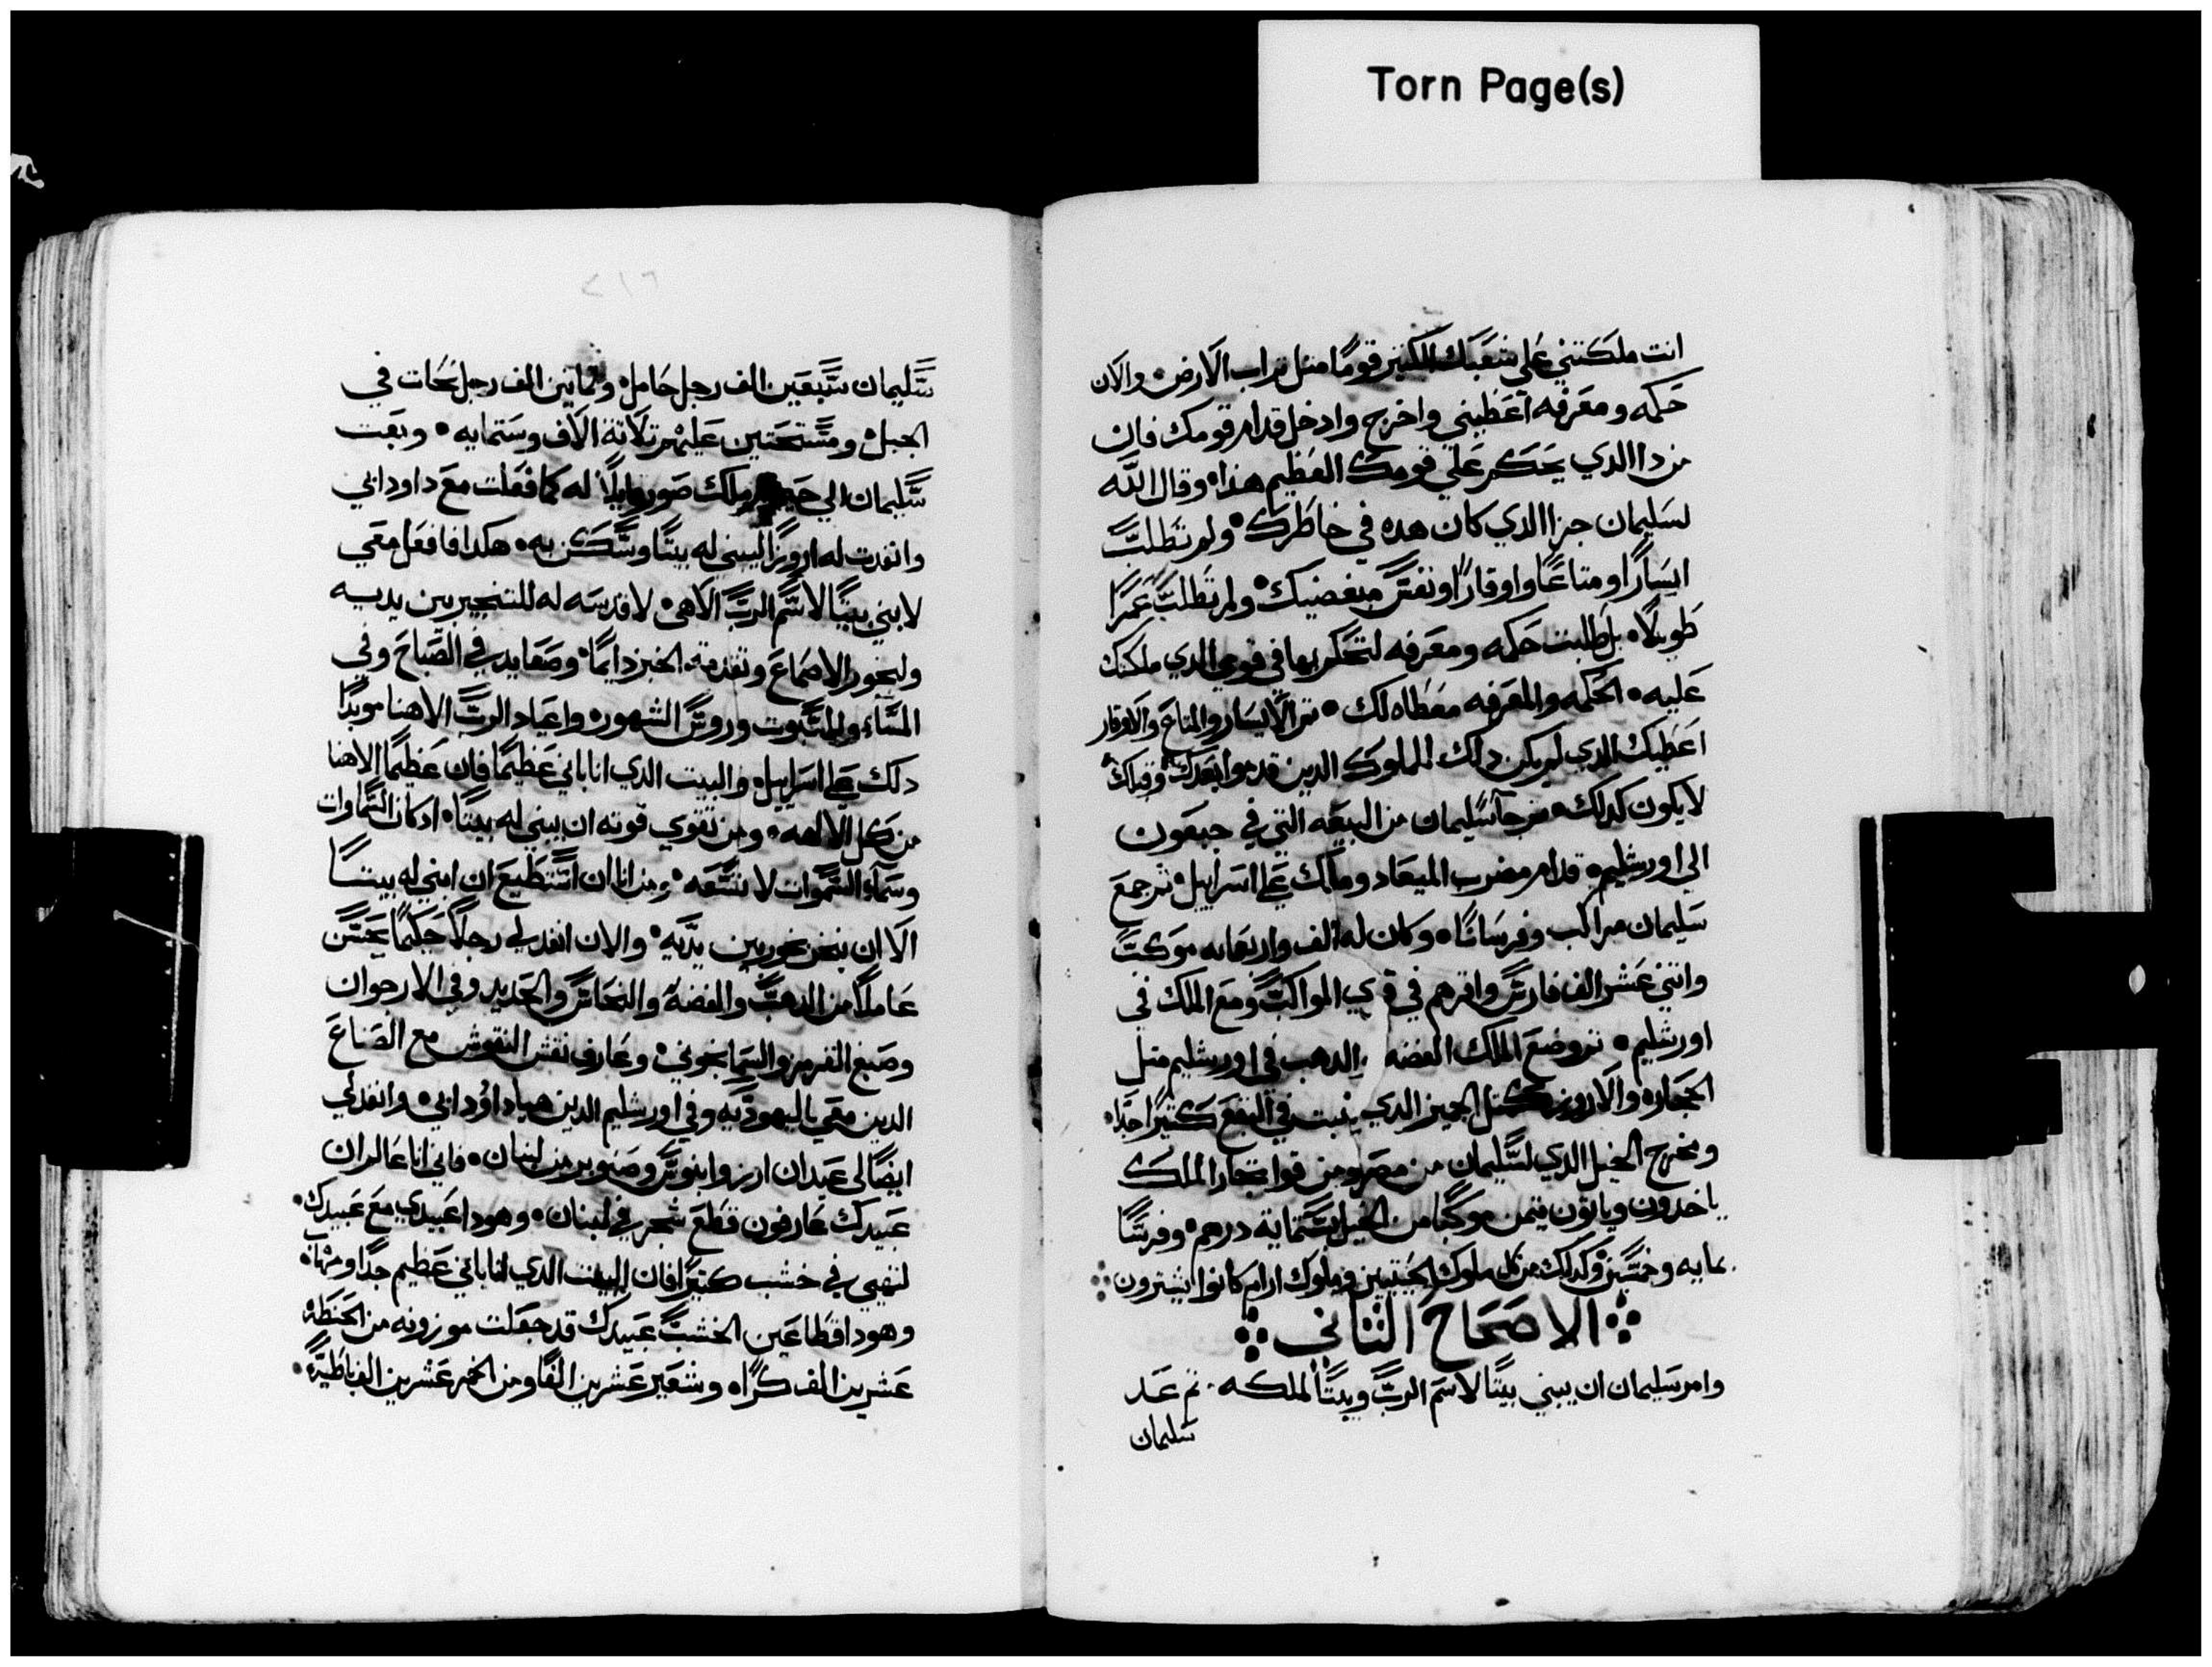 Torn Page(s)
انت ملكتني علي شعبك الكتير قومًا متل تراب الارض والان
حكمه ومعرفه اعطيني واخرج وادخل قدام قومك فان
من دا الدي يحكم علي قومك العظيم هذا وقال الله
لسليمان جزا الدي كان هده في خاطرك ولم تطلب
ايسارًا ومتاعًا واوقارًا ونفس مبغضيك ولم تطلب عمرًا
طويلًا بل طلبت حكمه ومعرفه لتحكم بها في قومي الدي ملكتك
عليه الحكمه والمعرفه معطاه لك تم الايسار والمتاع والاوقار
اعطيك الدي لم يكن دلك للملوك الدين قدموا بعدك وقبلك
لا يكون كدلك تم جا سليمان من البيعه التي في جبعون
الي اورشليم قدام مضرب الميعاد وملك علي اسراييل تم جمع
سليمان مراكب وفرسانًا وكان له الف واربعمايه موكب
واتني عشر الف فارس واقرهم في قري المواكب ومع الملك في
اورشليم تم وضع الملك الفضه والدهب في اورشليم متل
الحجاره والاروز كمتل الجميز الدي ينبت في البقع كتيرًا جدًا
ومخرج الخيل الدي لسليمان من مصر ومن قوا تجار الملك
ياخدون وياتون بتمن موكبًا من الخيل بستمايه درهم وفرسًا
بمايه وخمسين وكدلك من كل ملوك الحيتيين وملوك ارام كانوا يشترون
الاصحاح التاني
وامر سليمان ان يبني بيتًا لاسم الرب وبيتًا لملكه تم عد
سليمان
٢١٦
سليمان سبعين الف رجل حامل وتمانين الف رجل نحات في
الجبل ومستحتين عليهم تلاتة الاف وستمايه وبعت
سليمان الي ملك صور قايلًا له كما فعلت مع داود ابي
وانفدت له اروزًا ليبني له بيتًا وسكن به هكدا فافعل معي
لابني بيتًا لاسم الرب الاهي لاقدسه له للتبخير بين يديه
ولبخور الاصماع وتقدمة الخبز دايمًا وصعايد في الصباح وفي
المساء وللسبوت وروس الشهور واعياد الرب الاهنا موبدًا
دلك علي اسراييل والبيت الدي انا باني عظيمًا فان عظيمًا الاهنا
من كل الالهه ومن تقوي قوته ان يبني له بيتًا ادكان السماوات
وسماء السموات لا تسعه ومن انا ان استطيع ان ابني له بيتًا
الا ان نبخر بخور بين يديه والان انفد لي رجلًا حكيمًا يحسن
عاملًا من الدهب والفضه والنحاس والحديد وفي الارجوان
وصبغ القرمز والسمانجوني وعارف نقش النقوش مع الصناع
الدين معي باليهوديه وفي اورشليم الدين هيا داود ابي وانفد لي
ايضًا لي عيدان ارز وابنوس وصنوبر من لبنان فاني انا عالم ان
عبيدك عارفون قطع شجر في لبنان وهودا عبيدي مع عبيدك
لنهيي في خشب كتيرًا فان البيت الدي انا باني عظيم جدًا ومهاب
وهودا قطاعين الخشب عبيدك قد جعلت موزونه من الحنطه
عشرين الف كرًا وشعير عشرين الفًا ومن الخمر عشرين الف باطية